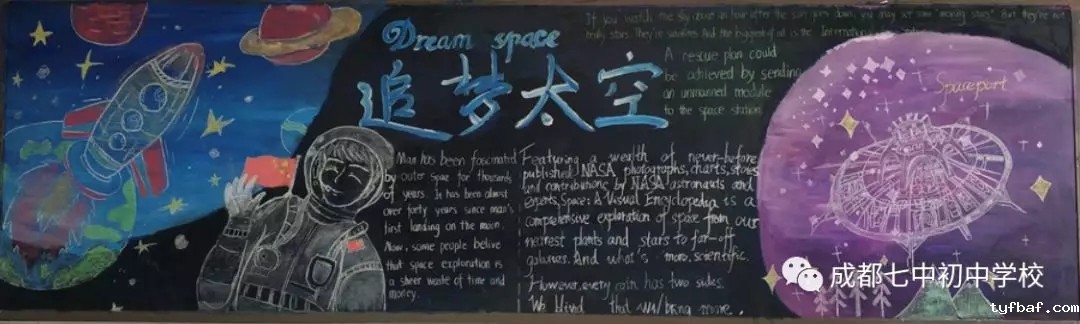 Dream space
追梦太空
If you watch the sky about an hour after the sun goes down, you may see some "moving stars". But they're not
really stars. They're satellites and the biggest of all is the International
A rescue plan could
be achieved by sending
an unmanned module
to the space station
Spaceport
Man has been fascinated
by outer space for thousands
of years. It has been almost
over forty years since man's
first landing on the moon.
Now, some people belive
that space exploration is
a sheer waste of time and
money.
Featuring a wealth of never-before
published NASA photographs, charts, stories
and contributions by NASA astronauts and
experts, Space: A Visual Encyclopedia is a
comprehensive exploration of space from our
nearest plants and stars to far-off
galaxies. And what's more, scientific.
However, every coin has two sides.
We that will bring more.
成都七中初中学校
tyfbaf.com